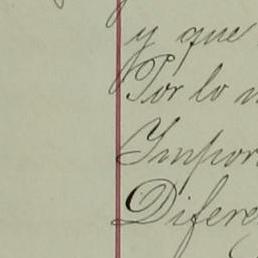 y que
Por lo
Impor
Difere